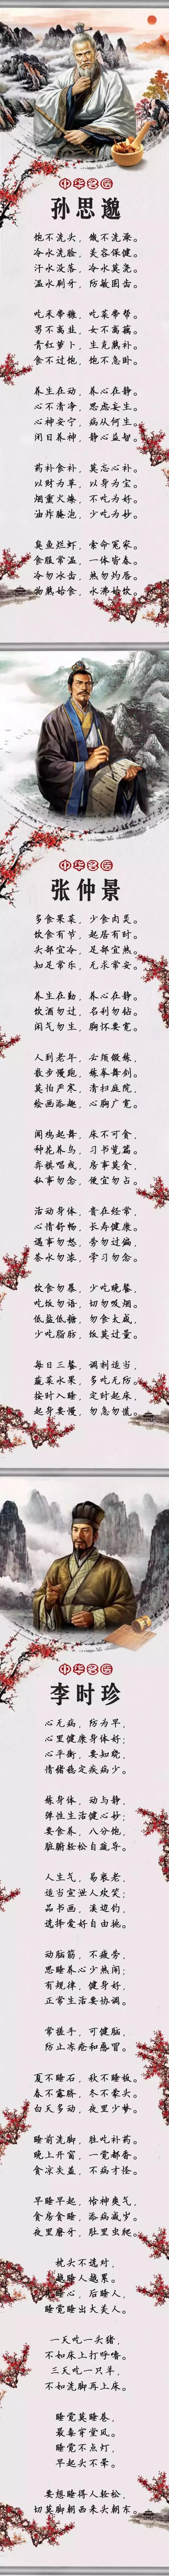 中华名医
孙思邈
饱不洗头，饿不洗澡。
冷水洗脸，美容保健。
汗水没落，冷水莫浇。
温水刷牙，防敏固齿。
吃米带糠，吃菜带帮。
男不离韭，女不离藕。
青红萝卜，生克熟补。
食不过饱，饱不急卧。
养生在动，养心在静。
心不清净，思虑妄生。
心神安宁，病从何生。
闭目养神，静心益智。
药补食补，莫忘心补。
以财为草，以身为宝。
烟熏火燎，不吃为好。
油炸腌泡，少吃为妙。
臭鱼烂虾，索命冤家。
食服常温，一体皆春。
冷勿冰齿，热勿灼唇。
物熟始食，水沸始饮。
中华名医
张仲景
多食果菜，少食肉类。
饮食有节，起居有时。
头部宜冷，足部宜热。
知足常乐，无求常安。
养生在勤，养心在静。
饮酒勿过，名利勿钻。
闲气勿生，胸怀要宽。
人到老年，必须锻炼，
散步慢跑，练拳舞剑。
莫怕严寒，清扫庭院，
绘画添趣，心胸广宽。
闻鸡起舞，床不可贪，
种花养鸟，习书览篇。
弈棋唱戏，房事莫贪，
私事勿念，便宜勿占。
活动身体，贵在经常，
心情舒畅，长寿健康。
遇事勿怒，劳勿过偏，
茶水勿浓，学习勿念。
饮食勿暴，少吃晚餐，
吃饭勿语，切勿吸烟。
低盐低糖，勿食太咸，
少吃脂肪，饭莫过量。
每日三餐，调剂适当，
蔬菜水果，多吃无防。
按时入睡，定时起床，
起身要慢，勿急勿慌。
中华名医
李时珍
心无病，防为早，
心里健康身体好；
心平衡，要知晓，
情绪稳定疾病少。
练身体，动与静，
弹性生活健心妙；
要食养，八分饱，
脏腑轻松自疏导。
人生气，易衰老，
适当宣泄人欢笑；
品书画，溪边钓，
选择爱好自由挑。
动脑筋，不疲劳，
思睡养心少热闹；
有规律，健身好，
正常生活要协调。
常搓手，可健脑，
防止冻疮和感冒。
夏不睡石，秋不睡板。
春不露脐，冬不蒙头。
白天多动，夜里少梦。
睡前洗脚，胜吃补药。
晚上开窗，一觉都香。
贪凉失盖，不病才怪。
早睡早起，怡神爽气，
贪房贪睡，添病减岁。
夜里磨牙，肚里虫爬。
枕头不选对，
越睡人越累。
先睡心，后睡人，
睡觉睡出大美人。
一天吃一头猪，
不如床上打呼噜。
三天吃一只羊，
不如洗脚再上床。
睡觉莫睡巷，
最毒穿堂风。
睡觉不点灯，
早起头不晕。
要想睡得人轻松，
切莫脚朝西来头朝东。